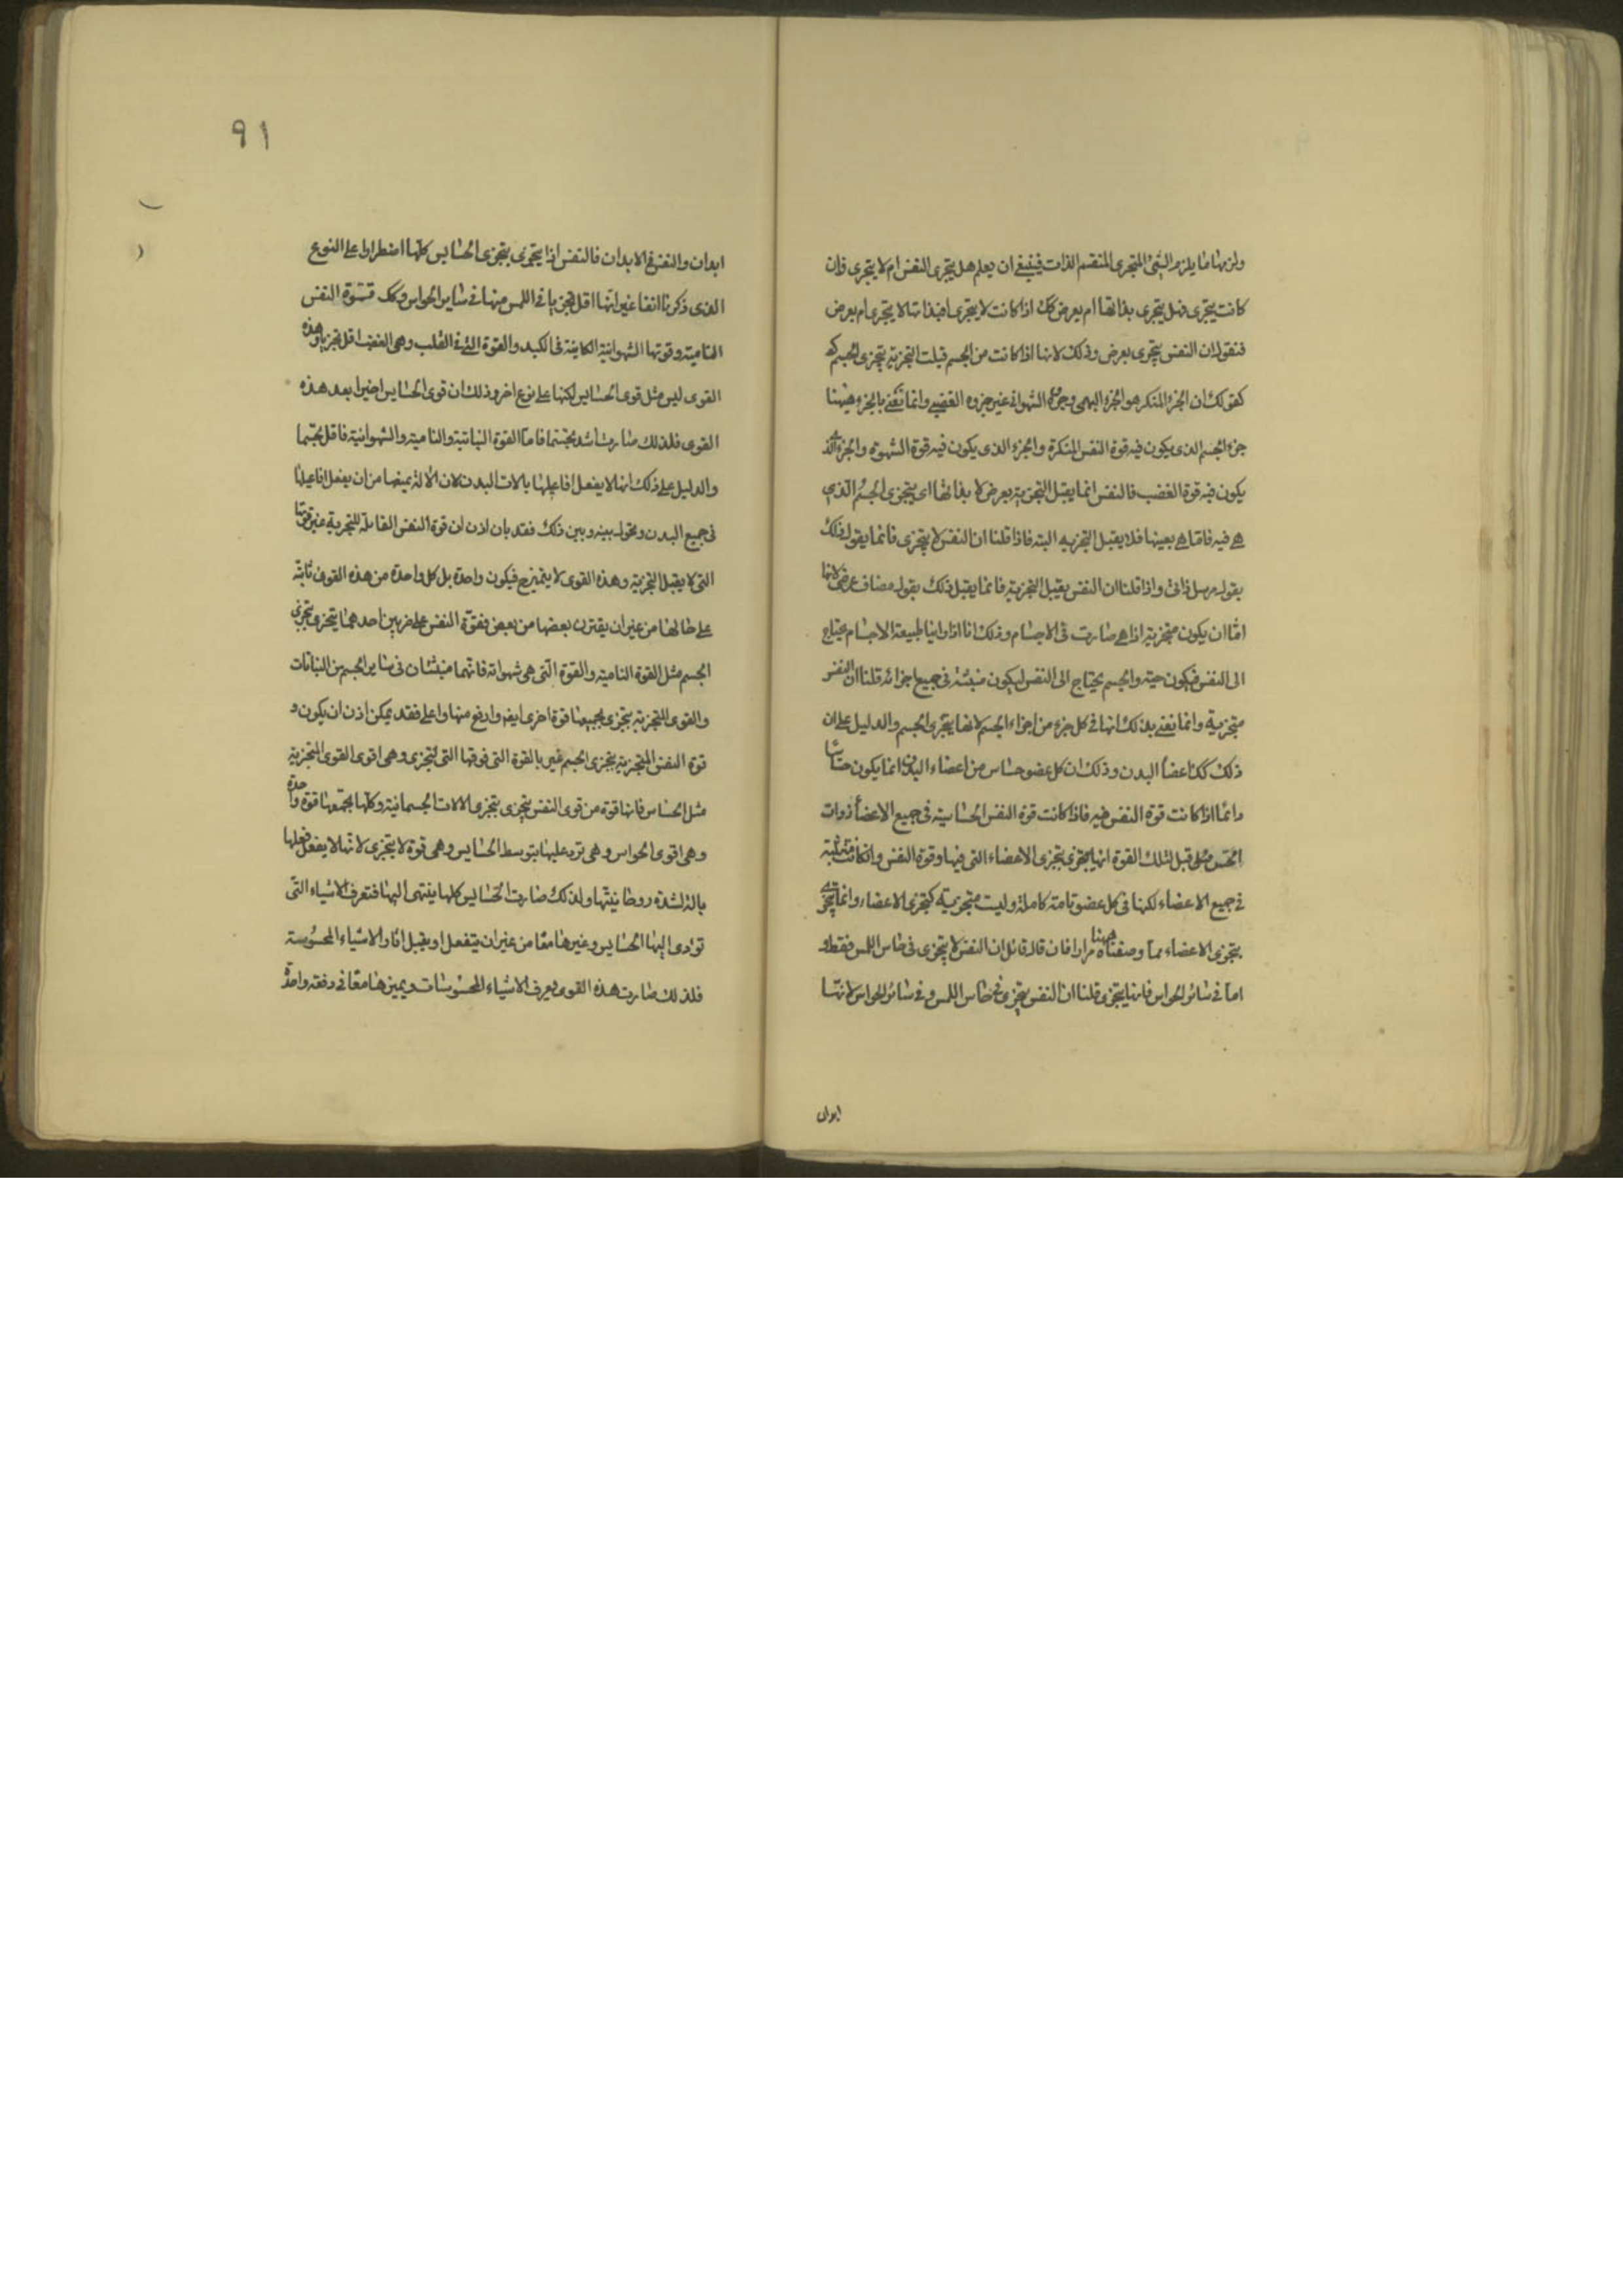 ولزمها ما يلزم الشئ المتجزى المنقسم الذات فينبغى ان يعلم هل يتجزى النفس ام لا يتجزى فان
كانت يتجزى فهل يتجزى بذاتها ام بعرض وكك اذا كانت لا يتجزى افبذاتها لا يتجزى ام بعرض
فنقول ان النفس يتجزى بعرض وذلك لانها اذا كانت من الجسم قبلت التجزية يتجزى الجسم
كقولك ان الجزء المتفكر هو الجزء البهيمى وجزؤه الشهوانى غير جزوه الغضبى وانما نعنى بالجزء هيهنا
جزء الجسم الذى يكون فيه قوة النفس المتفكرة والجزء الذى يكون فيه قوة الشهوة والجزء الذ
يكون فيه قوة الغضب فالنفس انما يقبل التجزية بعرض لا بذاتها اى يتجزى الجسم الذى
هى فيه فاما هى بعينها فلا يقبل التجزية البته فاذا قلنا ان النفس لا يتجزى فانما يقول ذلك
بقول مرسل ذاتى واذا قلنا ان النفس يقبل التجزية فانما يقبل ذلك بقول مضاف عرضى لانها
انما ان يكون متجزية اذا هى صارت فى الاجسام وذلك انا اذا راينا طبيعة الاجسام يحتاج
الى النفس فيكون حية والجسم يحتاج الى النفس ليكون منبثة فى جميع اجزائه قلنا ان النفس
متجزية وانما نعنى بذلك انها فى كل جزء من اجزاء الجسم لانها يتجزى الجسم والدليل على ان
ذلك كك اعضأ البدن وذلك ان كل عضو حساس من اعضاء البدن انما يكون حساسا
دائما اذا كانت قوة النفس فيه فاذا كانت قوة النفس الحساسية فى جميع الاعضأ ذوات
الحس قيل لتلك القوة انها يتجزى بتجزى الاعضاء التى فيها وقوة النفس وان كانت منبثة
فى جميع الاعضاء لكنها فى كل عضو تامة كاملة وليست متجزية كتجزى الاعضاء وانما يتجزى
بتجزى الاعضاء مما وصفناه ههنا مرارا فان قال قائل ان النفس لا يتجزى فى حاس اللمس فقط و
اما فى سائر الحواس فانها يتجزى قلنا ان النفس يتجزى فى حاس اللمس وفى سائر الحواس لانها
ابدان
٩١
ابدان والنفس فى الابدان فالنفس اذا يتجزى بتجزى الحسايس كلها اضطرارا على النوع
الذى ذكرنا انفا غير انها اقل تجزيا فى اللمس منها فى سائر الحواس وكك قوة النفس
النامية وقوتها الشهوانية الكاينة فى الكبد والقوة التى فى القلب وهى الغضب اقل تجزيا وهذه
القوى ليس مثل قوى الحسايس لكنها على نوع اخر وذلك ان قوى الحسايس اخيرا بعد هذه
القوى فلذلك صارت اشد تجسما فاما القوة النباتية والنامية والشهوانية فاقل تجسما
والدليل على ذلك انها لا يفعل افاعيلها بالات البدن لان الالة يمنعها من ان يفعل افاعيلها
فى جميع البدن ويحول بينه وبين ذلك فقد بان اذن ان قوة النفس القابلة للتجزية غير قوتها
التى لا يقبل التجزية وهذه القوى لا يتمزج فيكون واحدة بل كل واحدة من هذه القوى ثابتة
على حالها من غير ان يقترن بعضها من بعض فقوة النفس على ضربين احدهما يتجزى بتجزى
الجسم مثل القوة النامية والقوة التى هى شهوانية فانهما منبثتان فى ساير الجسم من النباتات
والقوى المتجزية يتجزى لجميعها قوة اخرى ايضا وارفع منها واعلى فقد يمكن اذن ان يكون و
قوة النفس المتجزية بتجزى الجسم غير بالقوة التى فوقها التى لا يتجزى وهى اقوى القوى المتجزية
مثل الحساس فانها قوة من قوى النفس يتجزى بتجزى الالات الجسمانية وكلها يجمعها قوة واحدة
وهى اقوى الحواس وهى ترد عليها بتوسط الحسايس وهى قوة لا يتجزى لانها لا يفعل فعلها
بالة لشدة روحانيتها ولذلك صارت الحسايس كلها ينتهى اليها فتعرف الاشياء التى
تؤدى اليها الحسايس وغيرها معا من غير ان ينفعل او يقبل اثار الاشياء المحسوسة
فلذلك صارت هذه القوى يعرف الاشياء المحسوسات ويميزها معا فى دفعة واحدة